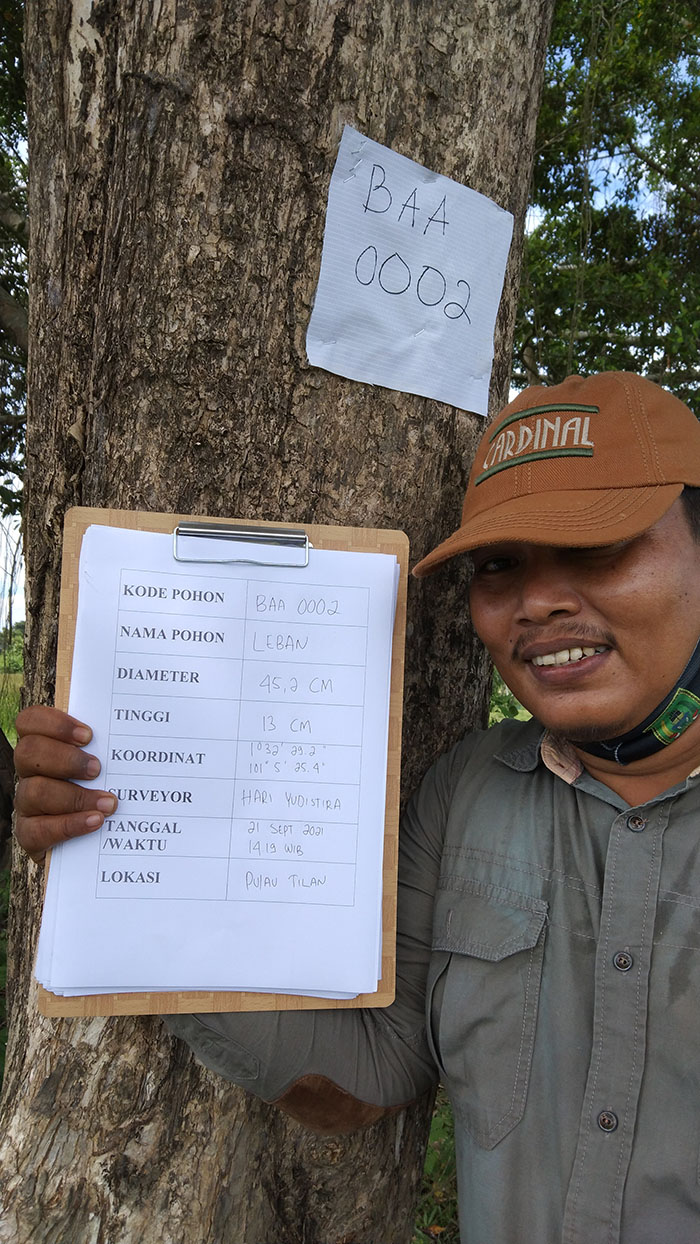 BAA
0002
CARDINAL
KODE POHON BAA 0002
NAMA POHON LEBAN
DIAMETER 45,2 CM
TINGGI 13 CM
KOORDINAT 1°32' 29.2"
101° 5' 25.4"
SURVEYOR HARI YUDISTIRA
TANGGAL 21 SEPT 2021
/WAKTU 14.19 WIB
LOKASI PULAU TILAN